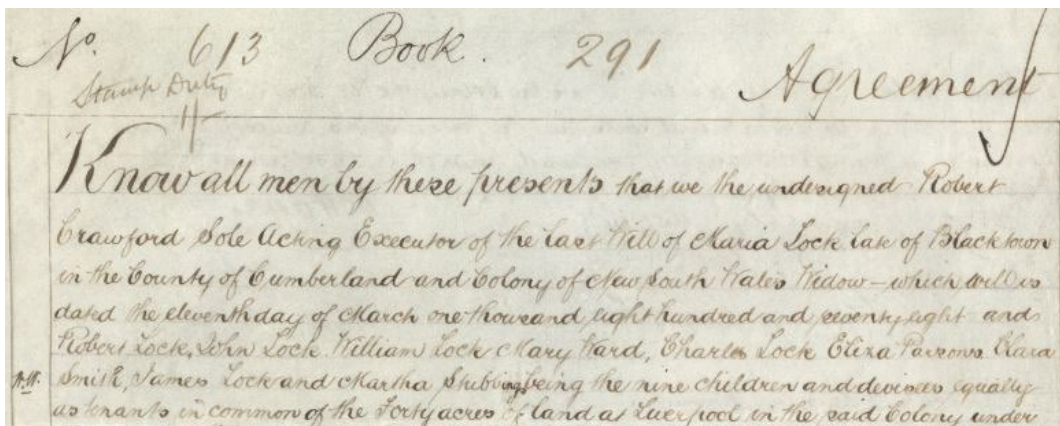 No. 613 Book. 291
Stamp Duty
1/-
Agreement
Know all men by these presents that we the undesigned Robert
Crawford Sole Acting Executor of the last Will of Maria Lock late of Blacktown
in the County of Cumberland and Colony of New South Wales Widow – which will is
dated the eleventh day of March one thousand eight hundred and seventy eight and
Robert Lock, John Lock William Lock Mary Ward, Charles Lock Eliza Parsons Clara
Smith, James Lock and Martha Stubbings being the nine children and devisees equally
as tenants in common of the Forty acres of land at Liverpool in the said Colony under